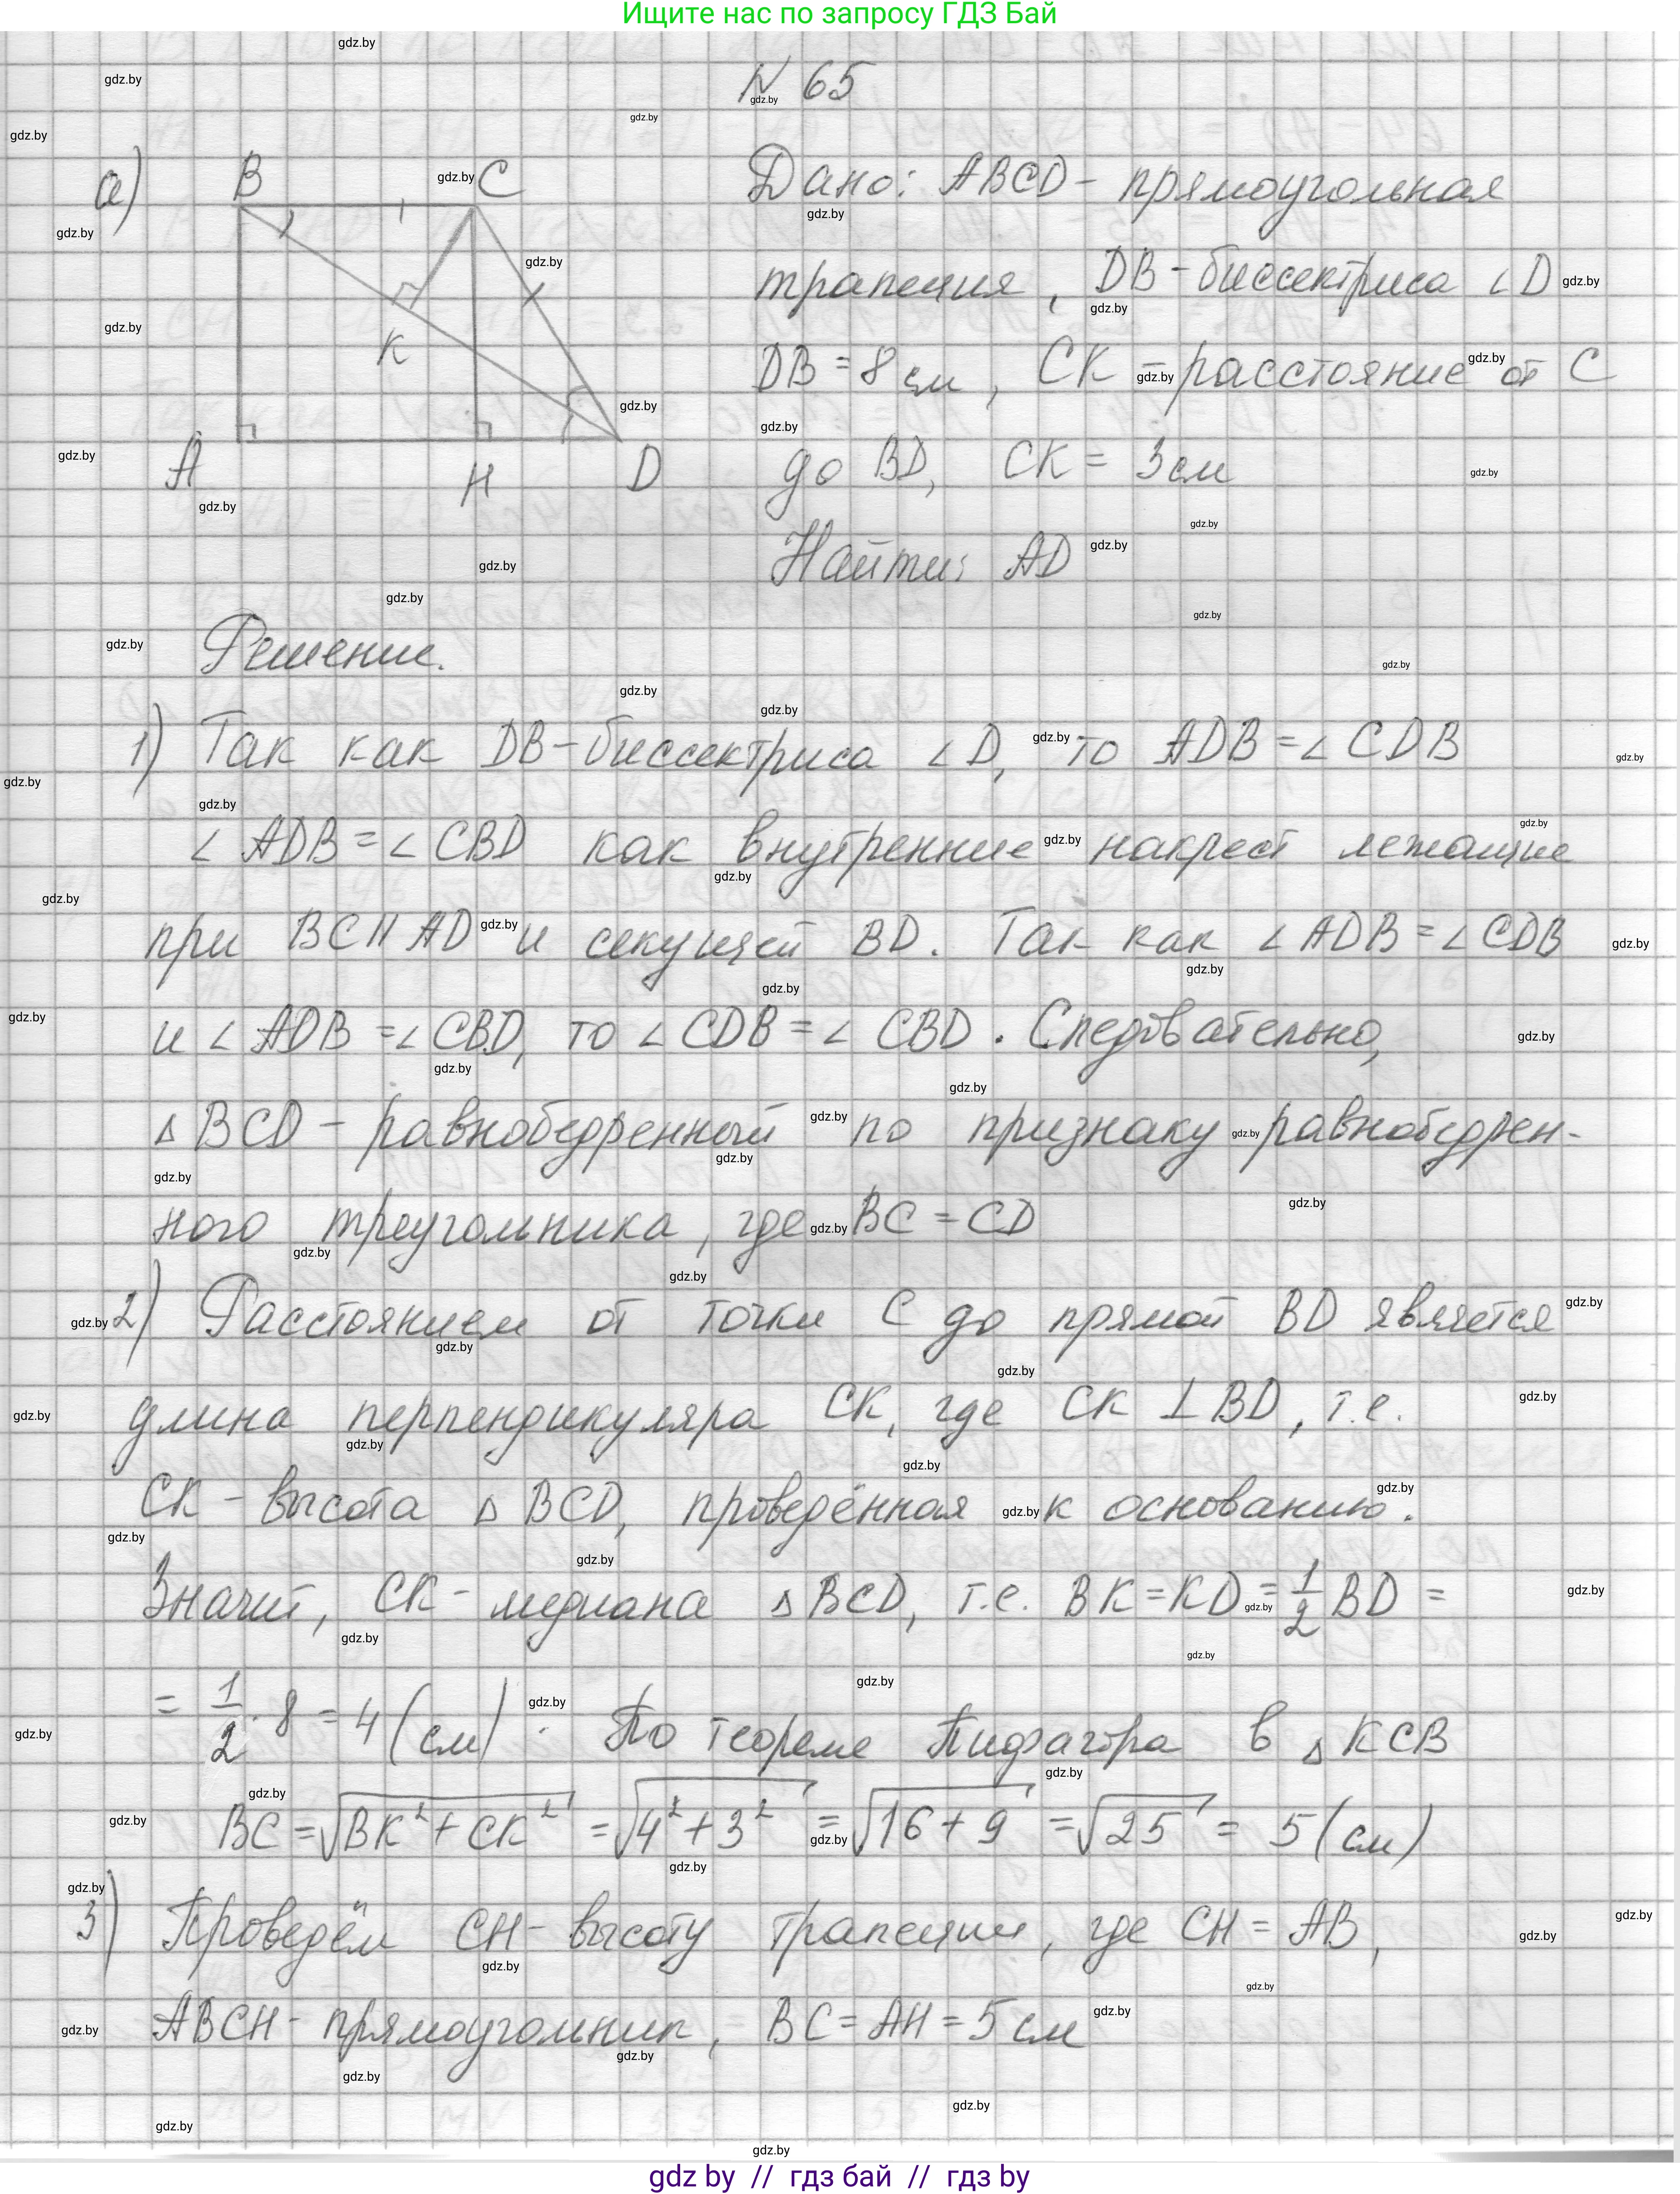 Ищите нас по запросу ГДЗ Бай
N 65
а) B C
K
A H D
Дано: ABCD - прямоугольная
трапеция, DB - биссектриса ∠D
DB = 8 см, CK - расстояние от C
до BD, CK = 3 см
Найти: AD
Решение.
1) Так как DB - биссектриса ∠D, то ADB = ∠CDB
∠ADB = ∠CBD как внутренние накрест лежащие
при BC || AD и секущей BD. Так как ∠ADB = ∠CDB
и ∠ADB = ∠CBD, то ∠CDB = ∠CBD. Следовательно,
△BCD - равнобедренный по признаку равнобедрен-
ного треугольника, где BC = CD
2) Расстоянием от точки C до прямой BD является
длина перпендикуляра CK, где CK ⊥ BD, т.е.
CK - высота △BCD, проведённая к основанию.
Значит, CK - медиана △BCD, т.е. BK = KD = 1/2 BD =
= 1/2 · 8 = 4 (см). По теореме Пифагора в △KCB
BC = √(BK² + CK²) = √(4² + 3²) = √(16 + 9) = √25 = 5 (см)
3) Проведём CH - высоту трапеции, где CH = AB,
ABCH - прямоугольник, BC = AH = 5 см
gdz by // гдз бай // гдз by